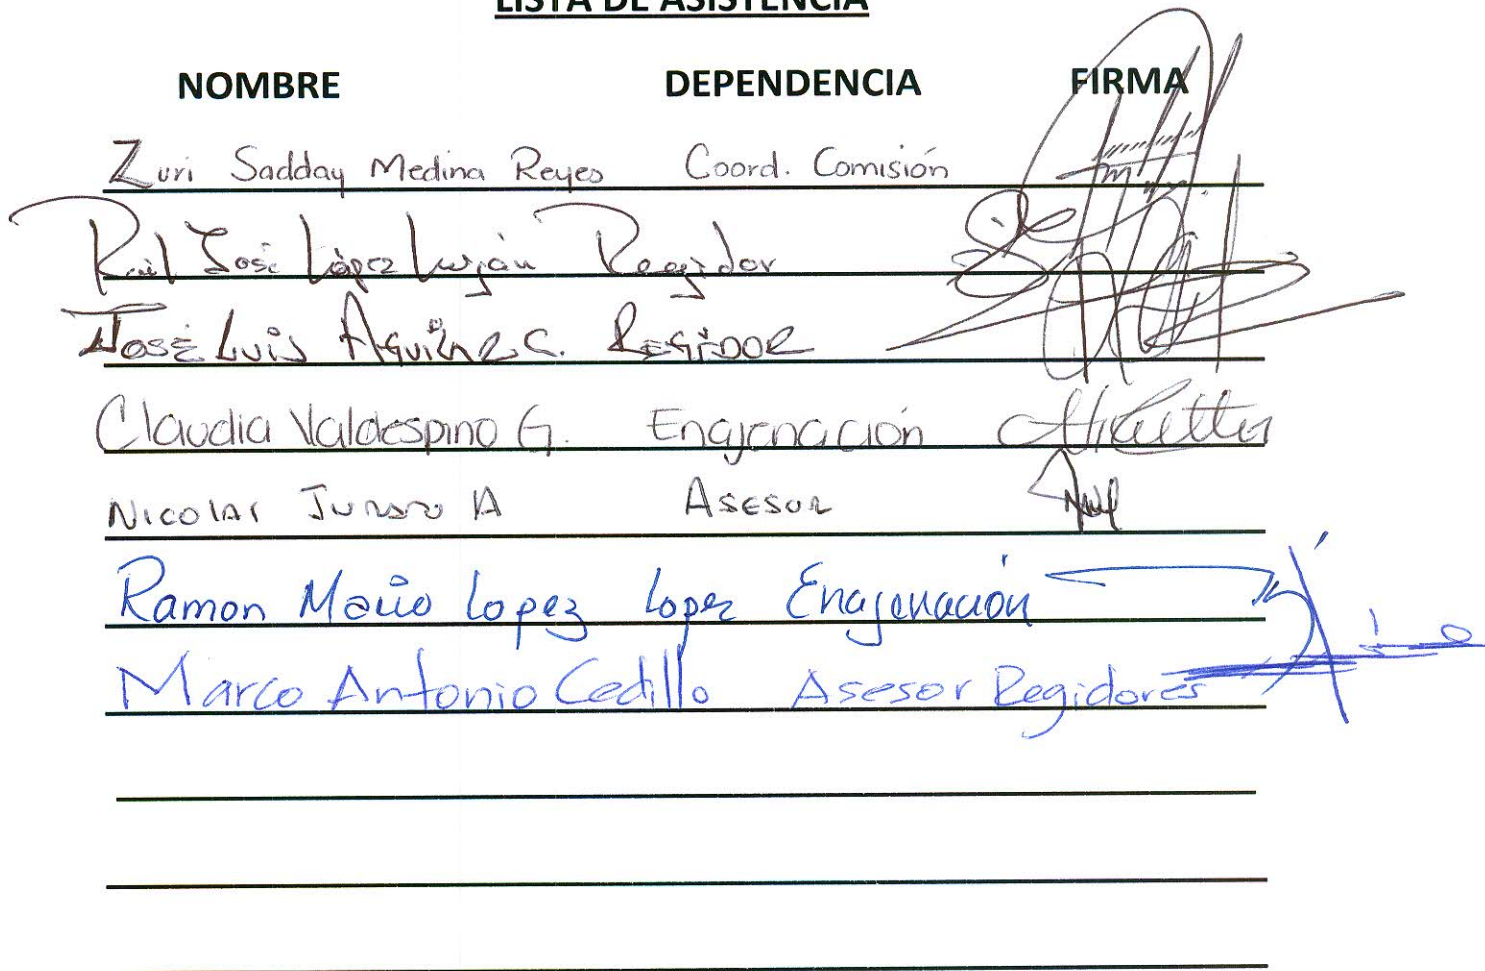 LISTA DE ASISTENCIA
NOMBRE DEPENDENCIA FIRMA
Zuri Sadday Medina Reyes Coord. Comisión
Raúl José López Luján Regidor
José Luis Aguilar C. Regidor
Claudia Valdespino G. Enajenación
Nicolas Jurado A Asesor
Ramon Mario Lopez Lopez Enajenación
Marco Antonio Cedillo Asesor Regidores